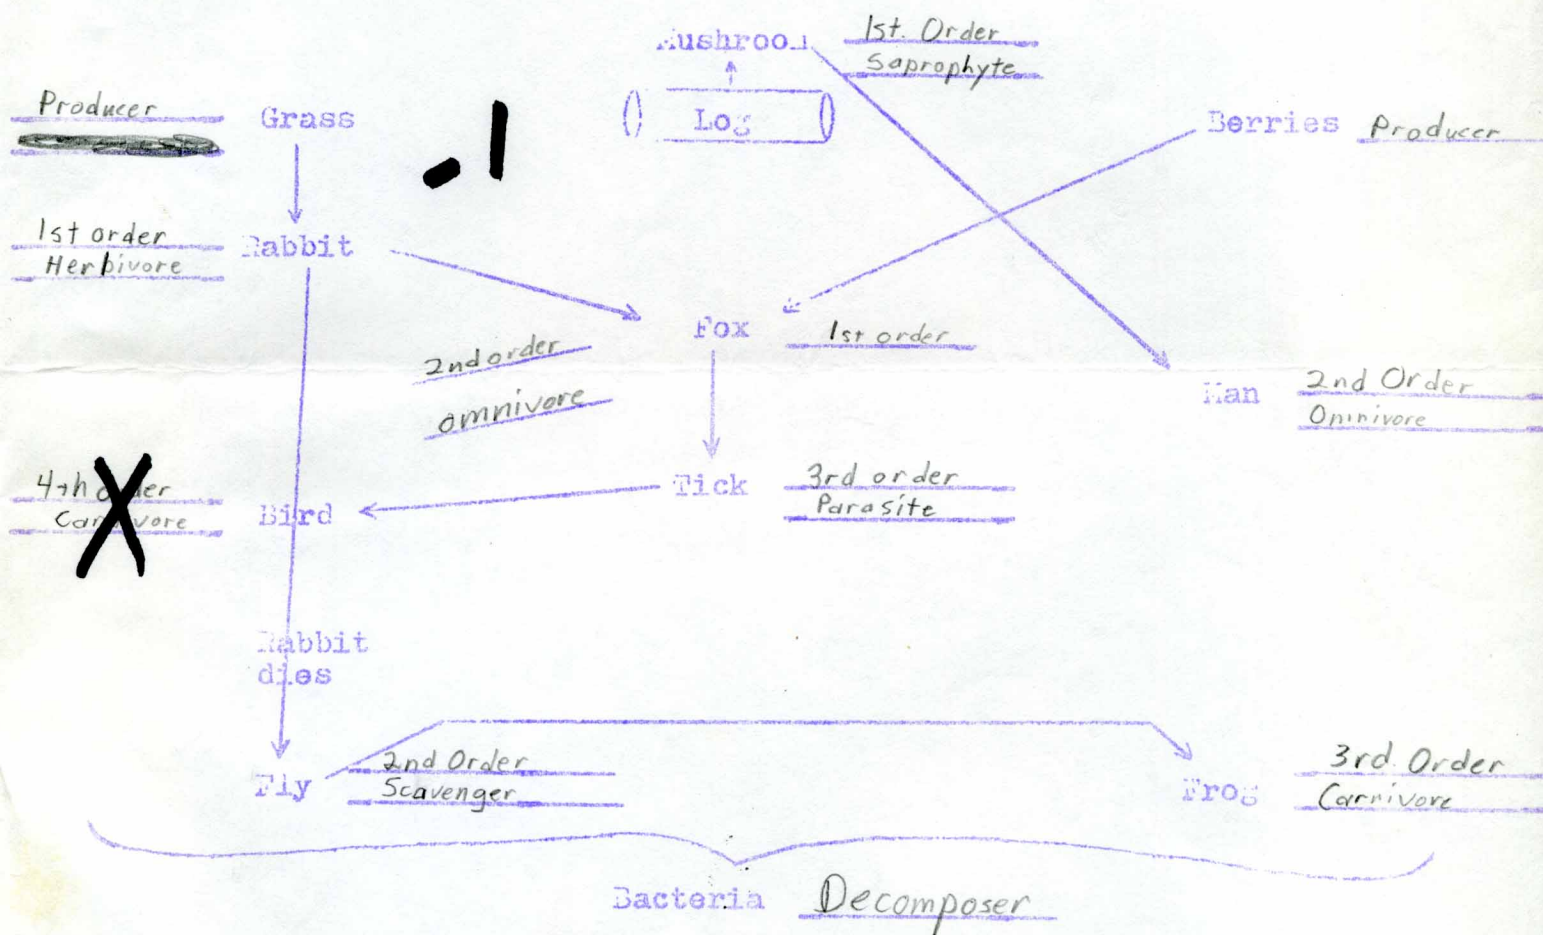 Mushroom 1st. Order
Saprophyte
Producer Grass
-1
Log
Berries Producer
1st order Rabbit
Herbivore
Fox 1st order
2nd order
omnivore
Man 2nd Order
Omnivore
4th order Bird
Carnivore
Tick 3rd order
Parasite
Rabbit
dies
Fly 2nd Order
Scavenger
Frog 3rd. Order
Carnivore
Bacteria Decomposer